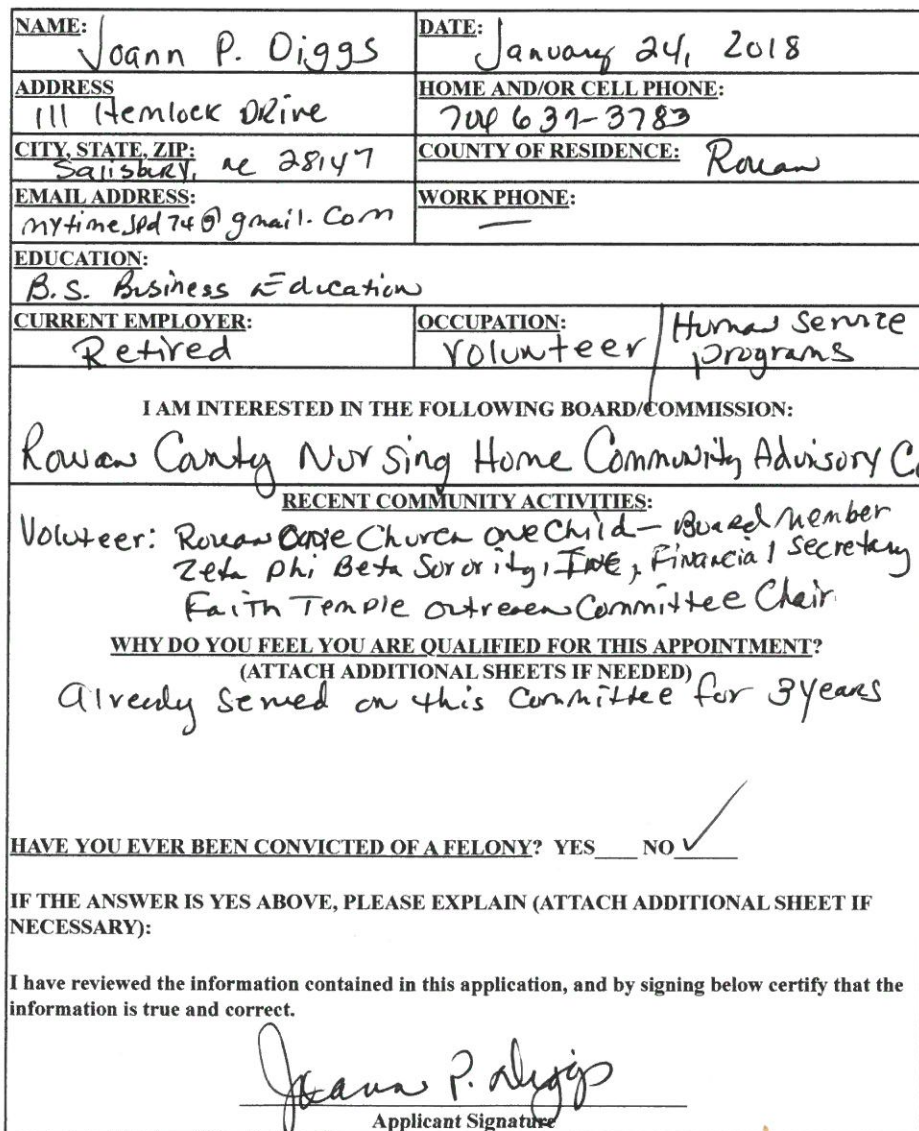 NAME: Joann P. Diggs
DATE: January 24, 2018
ADDRESS
111 Hemlock DRive
HOME AND/OR CELL PHONE:
704 637-3783
CITY, STATE, ZIP:
Salisbury, nc 28147
COUNTY OF RESIDENCE: Rowan
EMAIL ADDRESS:
mytimejpd74@gmail.com
WORK PHONE:
—
EDUCATION:
B.S. Business Education
CURRENT EMPLOYER:
Retired
OCCUPATION:
Volunteer / Human Service
programs
I AM INTERESTED IN THE FOLLOWING BOARD/COMMISSION:
Rowan County Nursing Home Community Advisory Co
RECENT COMMUNITY ACTIVITIES:
Voluteer: Rowan One Church One Child - Board Member
Zeta Phi Beta Sorority, INC, Financial Secretary
Faith Temple outreach Committee Chair
WHY DO YOU FEEL YOU ARE QUALIFIED FOR THIS APPOINTMENT?
(ATTACH ADDITIONAL SHEETS IF NEEDED)
Already Served on this Committee for 3 years
HAVE YOU EVER BEEN CONVICTED OF A FELONY? YES____ NO ✓
IF THE ANSWER IS YES ABOVE, PLEASE EXPLAIN (ATTACH ADDITIONAL SHEET IF
NECESSARY):
I have reviewed the information contained in this application, and by signing below certify that the
information is true and correct.
Joann P. Diggs
Applicant Signature